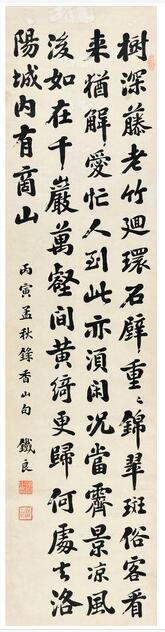 樹深藤老竹迴環石壁重〻錦翠斑俗客看
来猶解愛忙人到此亦須閑况當霽景凉風
後如在千巖萬壑間黄綺更歸何處去洛
陽城内有商山
丙寅孟秋錄香山句 鐵良